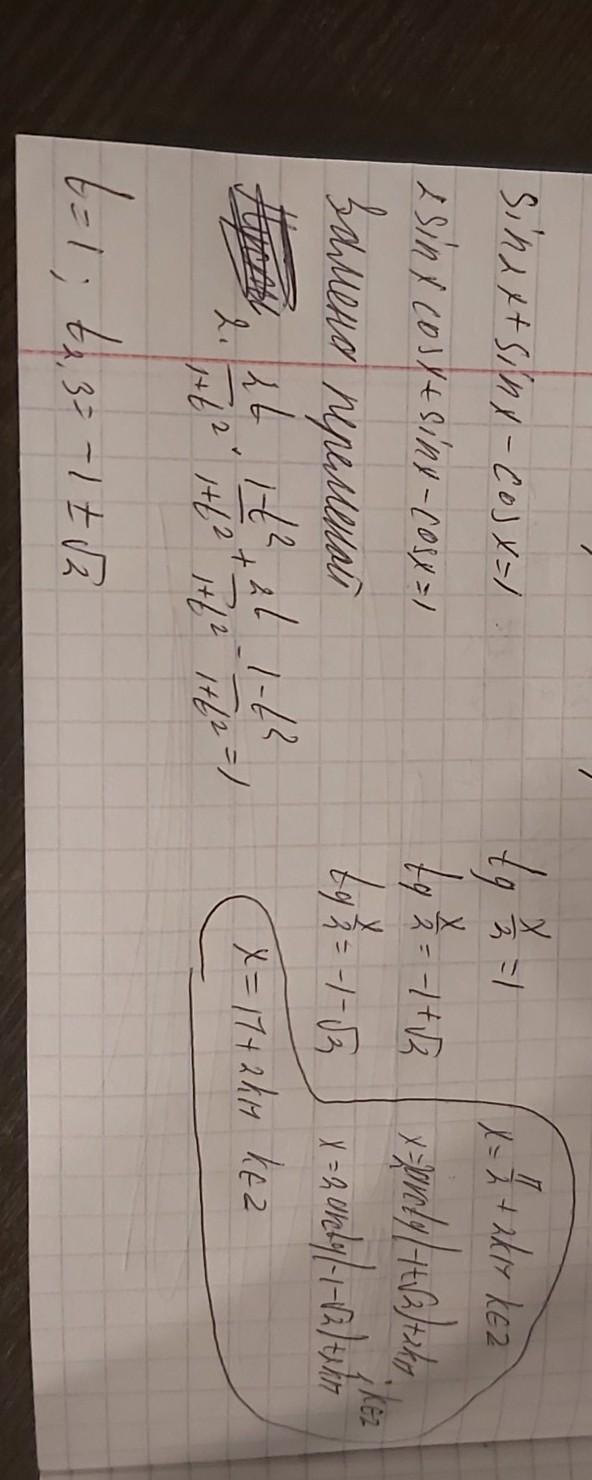 sin2x + sinx - cosx = 1
2sinx cosx + sinx - cosx = 1
Замена переменой
2 · 2t/(1+t²) · (1-t²)/(1+t²) + 2t/(1+t²) - (1-t²)/(1+t²) = 1
t = 1 ; t2,3 = -1 ± √2
tg x/2 = 1
tg x/2 = -1 + √2
tg x/2 = -1 - √2
x = π/2 + 2kπ k∈Z
x = 2arctg(-1+√2) + 2kπ
x = 2arctg(-1-√2) + 2kπ , k∈Z
x = π + 2kπ k∈Z